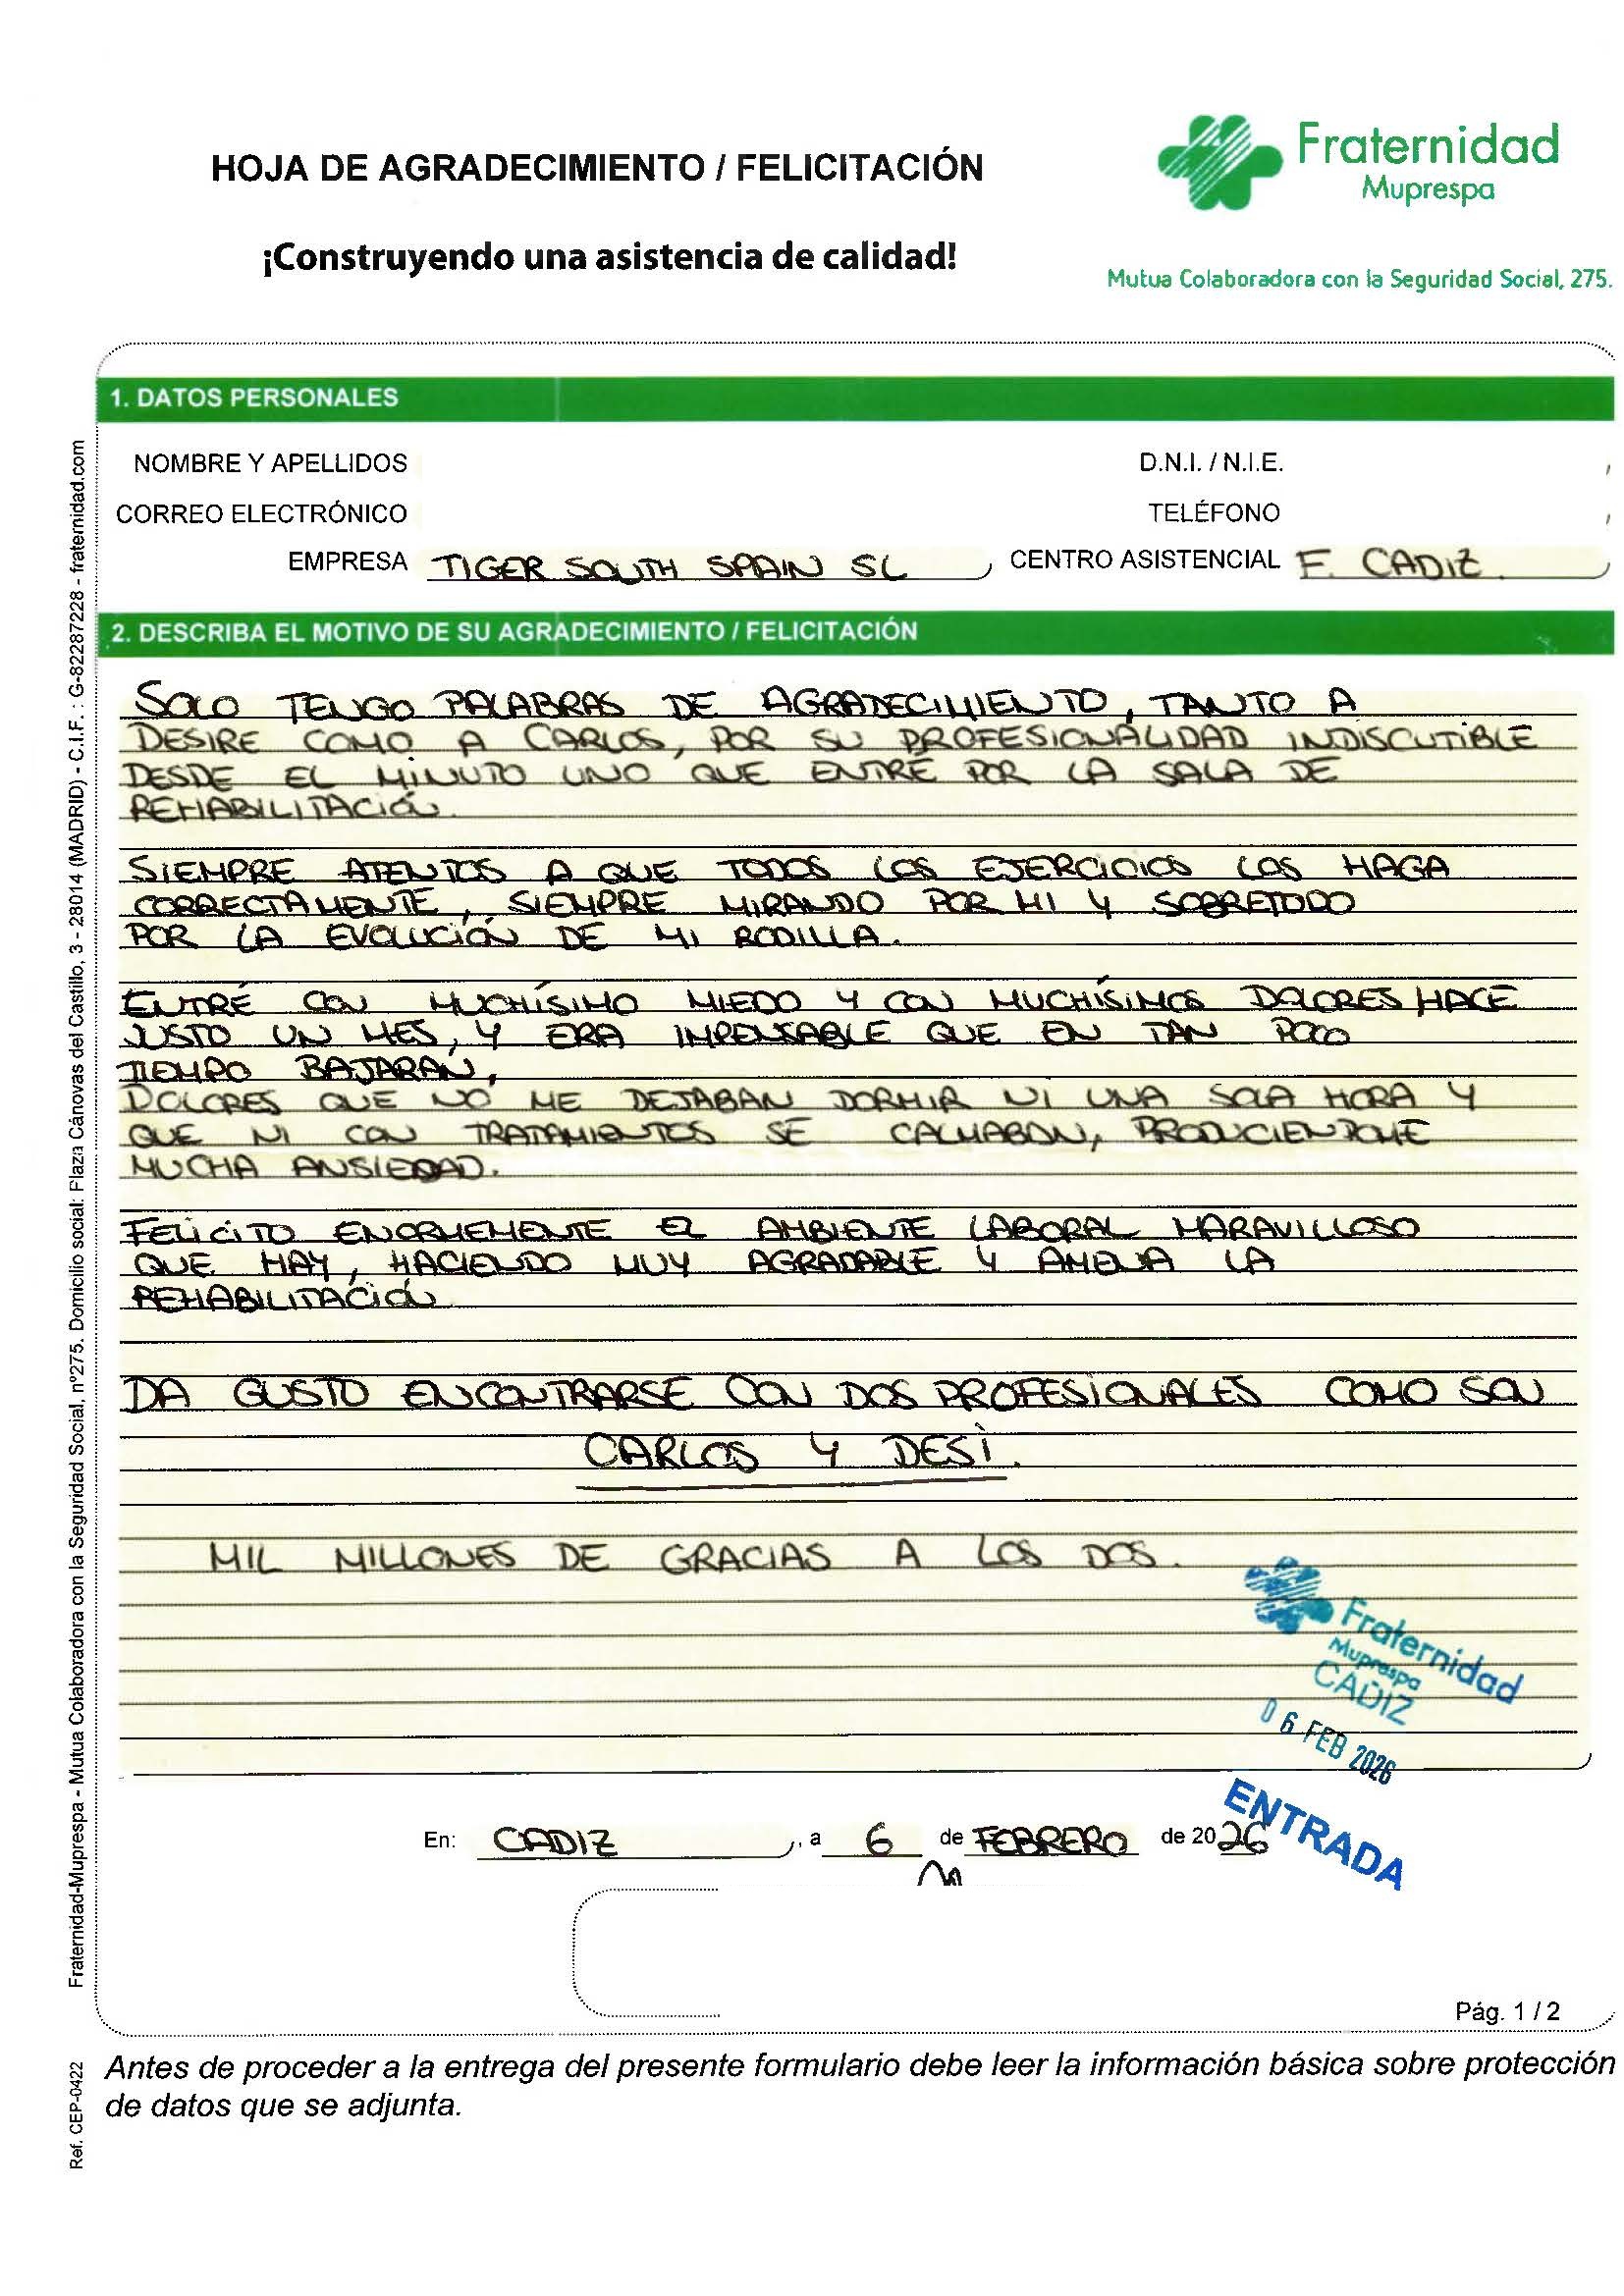 HOJA DE AGRADECIMIENTO / FELICITACIÓN
¡Construyendo una asistencia de calidad!
Fraternidad
Muprespa
Mutua Colaboradora con la Seguridad Social, 275.
1. DATOS PERSONALES
NOMBRE Y APELLIDOS
D.N.I. / N.I.E.
CORREO ELECTRÓNICO
TELÉFONO
EMPRESA TIGER SOUTH SPAIN SL
CENTRO ASISTENCIAL F. CADIZ.
2. DESCRIBA EL MOTIVO DE SU AGRADECIMIENTO / FELICITACIÓN
SOLO TENGO PALABRAS DE AGRADECIMIENTO, TANTO A
DESIRE COMO A CARLOS, POR SU PROFESIONALIDAD INDISCUTIBLE
DESDE EL MINUTO UNO QUE ENTRÉ POR LA SALA DE
REHABILITACIÓN.
SIEMPRE ATENTOS A QUE TODOS LOS EJERCICIOS LOS HAGA
CORRECTAMENTE, SIEMPRE MIRANDO POR MI Y SOBRETODO
POR LA EVOLUCIÓN DE MI RODILLA.
ENTRÉ CON MUCHÍSIMO MIEDO Y CON MUCHÍSIMOS DOLORES HACE
JUSTO UN MES, Y ERA IMPENSABLE QUE EN TAN POCO
TIEMPO BAJARAN,
DOLORES QUE NO ME DEJABAN DORMIR NI UNA SOLA HORA Y
QUE NI CON TRATAMIENTOS SE CALMABAN, PRODUCIENDOME
MUCHA ANSIEDAD.
FELICITO ENORMEMENTE EL AMBIENTE LABORAL MARAVILLOSO
QUE HAY, HACIENDO MUY AGRADABLE Y AMENA LA
REHABILITACIÓN
DA GUSTO ENCONTRARSE CON DOS PROFESIONALES COMO SON
CARLOS Y DESÌ.
MIL MILLONES DE GRACIAS A LOS DOS.
Fraternidad
Muprespa
CADIZ
06 FEB 2026
ENTRADA
En: CADIZ, a 6 de FEBRERO de 2026
Pág. 1 / 2
Antes de proceder a la entrega del presente formulario debe leer la información básica sobre protección
de datos que se adjunta.
Fraternidad-Muprespa - Mutua Colaboradora con la Seguridad Social, nº275. Domicilio social: Plaza Cánovas del Castillo, 3 - 28014 (MADRID) - C.I.F. : G-82287228 - fraternidad.com
Ref. CEP-0422